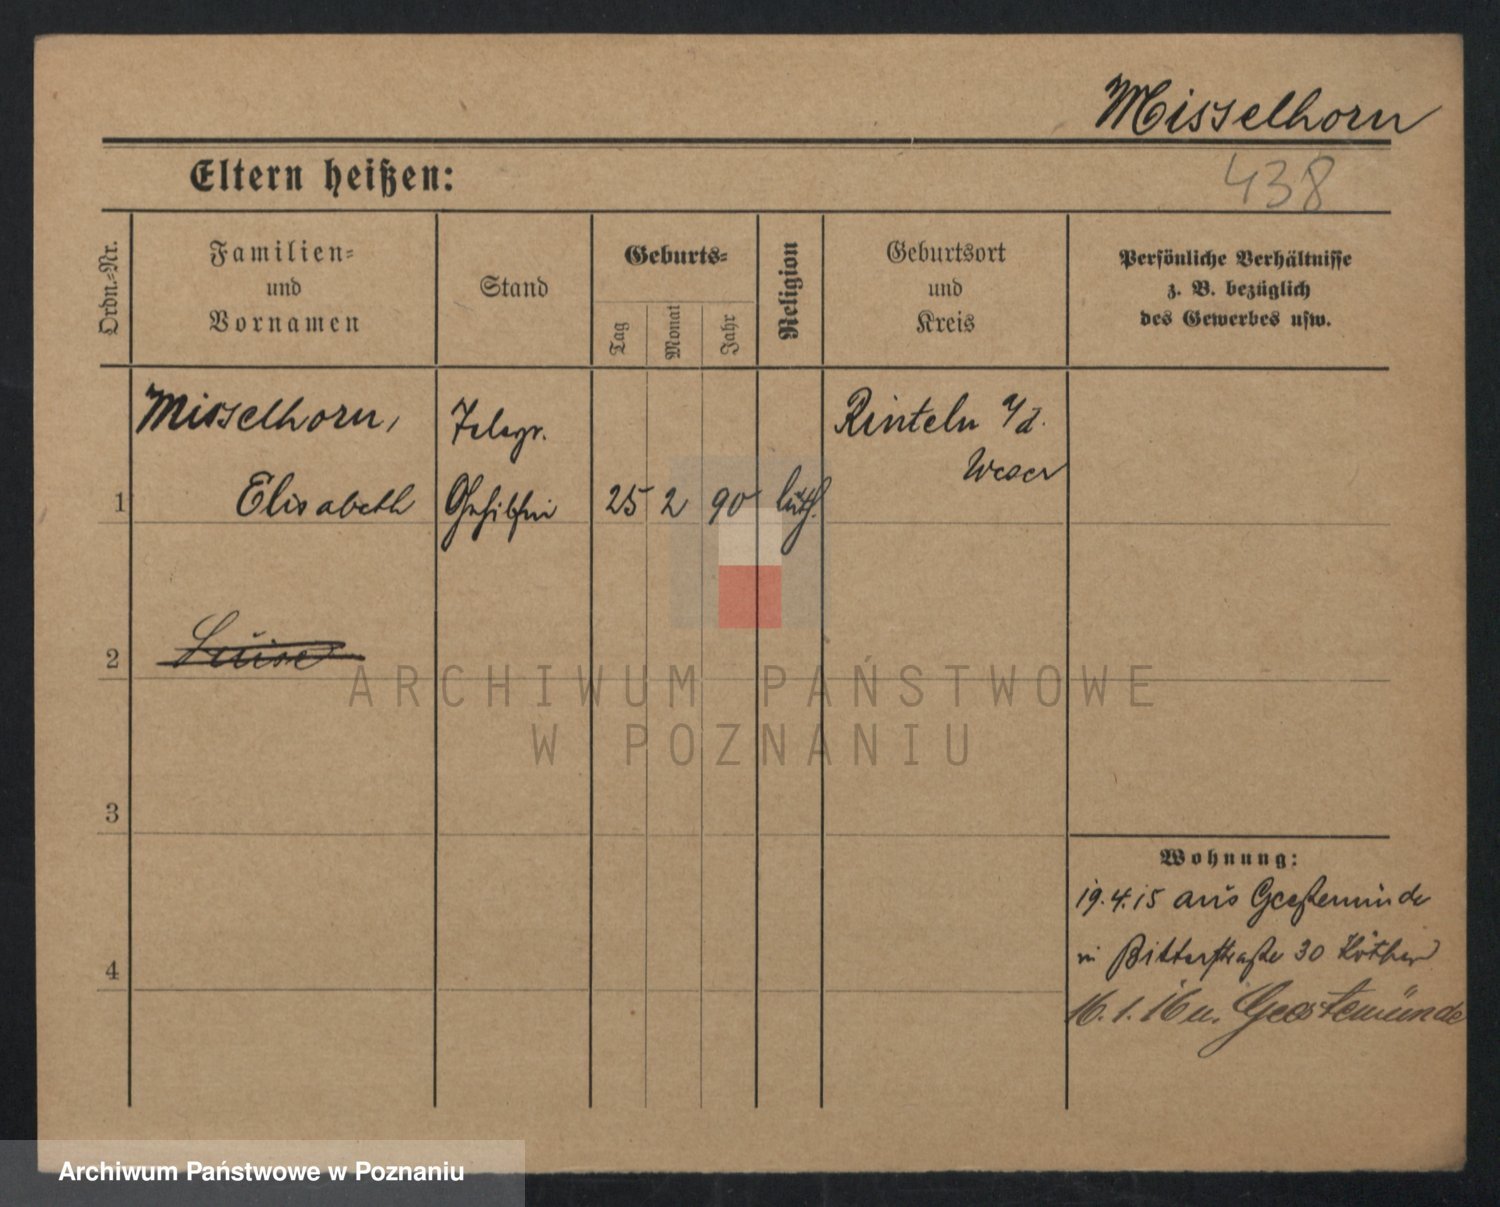 Misselhorn
438
Eltern heißen:
Ordn.-Nr.
Familien-
und
Vornamen
Stand
Geburts-
Tag
Monat
Jahr
Religion
Geburtsort
und
Kreis
Persönliche Verhältnisse
z. B. bezüglich
des Gewerbes usw.
Misselhorn,
Telegr.
Rinteln a/d.
Weser
1
Elisabeth
Gehilfin
25
2
90
luth.
2
Luise
3
4
Wohnung:
19.4.15 aus Geestemünde
in Bitterstraße 30
16.1.16 n. Geestemünde
ARCHIWUM PAŃSTWOWE
W POZNANIU
Archiwum Państwowe w Poznaniu